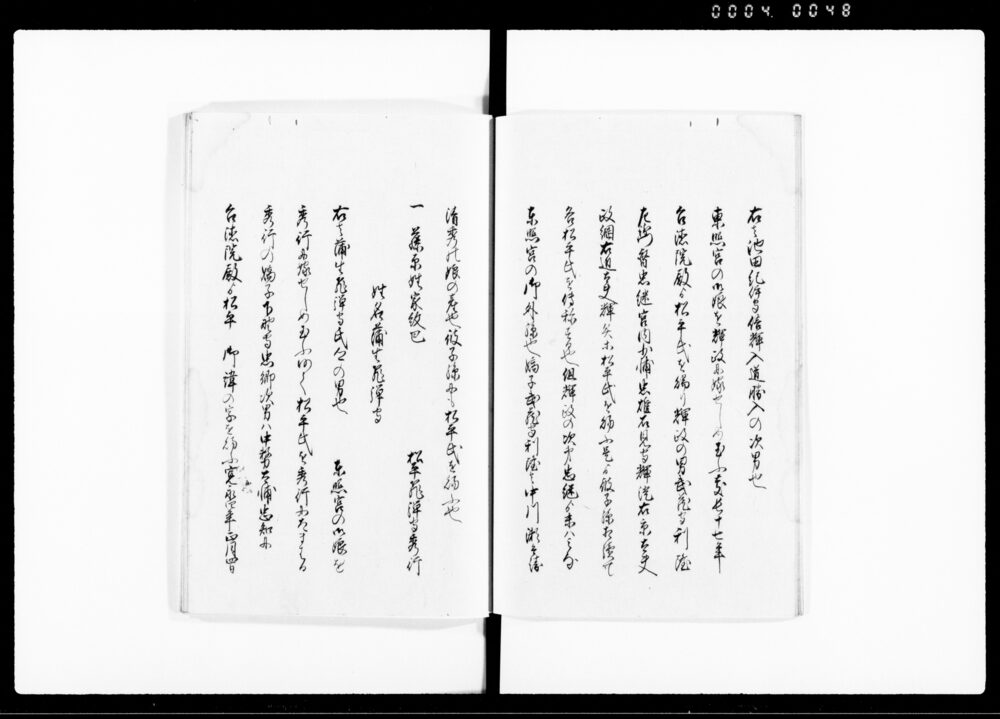 0004. 0048
右は池田紀伊守信輝入道勝入の次男也
東照宮の御娘を輝政に嫁せしめ玉ふ慶長十七年
台徳院殿より松平氏を賜り輝政の男武蔵守利隆
左衛門督忠継宮内少輔忠雄石見守輝澄右京大夫
政綱右近大夫輝興ホ松平氏を賜ふ是より彼子孫相続て
各松平氏を称する也但輝政の次男忠継より末八
東照宮の御外孫也嫡子武蔵守利隆は中川瀬兵衛
清秀の娘の産也彼子孫も松平氏を賜ふ也
一 藤原姓家紋巴 松平飛騨守秀行
姓名蒲生飛騨守
右は蒲生飛騨守氏の男也 東照宮の御娘を
秀行に嫁せしめ玉ふ 松平氏を秀行に
秀行の嫡子下野守忠郷次男八中務大輔忠知に
台徳院殿より松平 御諱の字を賜ふ寛永 年 月四日